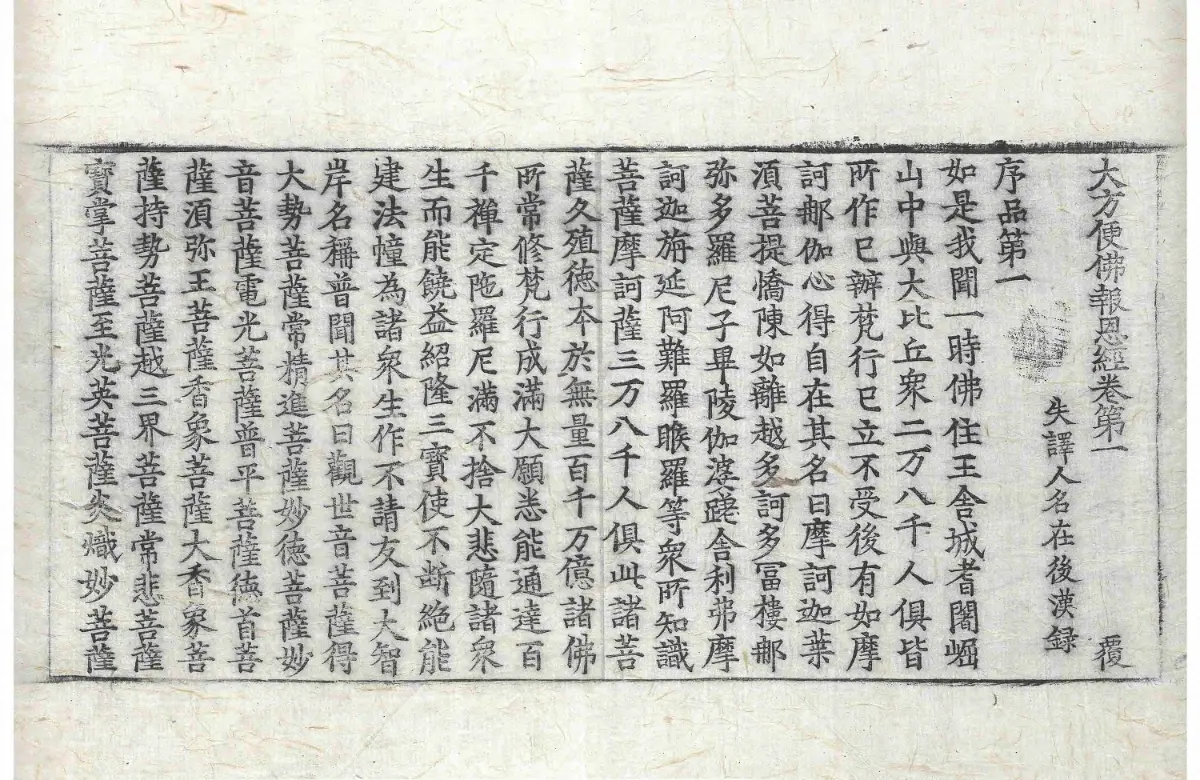 大方便佛報恩經卷第一 覆
失譯人名在後漢録
序品第一
如是我聞一時佛住王舍城耆闍崛
山中與大比丘衆二万八千人俱皆
所作已辦梵行已立不受後有如摩
訶那伽心得自在其名曰摩訶迦葉
湏菩提憍陳如離越多訶多冨樓那
弥多羅尼子畢陵伽婆蹉舍利弗摩
訶迦旃延阿難羅睺羅等衆所知識
菩薩摩訶薩三万八千人俱此諸菩
薩久殖德本於無量百千万億諸佛
所常修梵行成滿大願悉能通達百
千禪定陁羅尼滿不捨大悲隨諸衆
生而能饒益紹隆三寶使不断絶能
建法幢為諸衆生作不請友到大智
岸名稱普聞其名曰觀世音菩薩得
大勢菩薩常精進菩薩妙德菩薩妙
音菩薩電光菩薩普平菩薩德首菩
薩湏弥王菩薩香象菩薩大香象菩
薩持勢菩薩越三界菩薩常悲菩薩
寶掌菩薩至光英菩薩炎熾妙菩薩